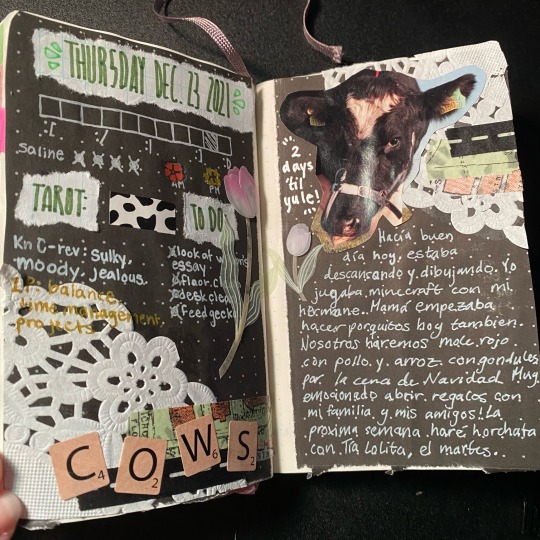 THURSDAY DEC. 23 2021
:[ :/ :] :D
saline
AM PM
TAROT:
TO DO
Kn C-rev: sulky,
moody. jealous.
2P: balance
time management
projects
look at
essay
floor cl
desk clea
feed geck
C4 O2 W6 S2
"2
days
til
yule!"
Hacía buen
día hoy, estaba
descansando y dibujando. Yo
jugaba minecraft con mi
hermane. Mamá empezaba
hacer porquitos boy también.
Nosotros haremos mole rojo
con pollo y arroz con gondules
por la cena de Navidad Muy
emocionado abrir regalos con
mi familia y mis amigos! La
proxima semana haré horchata
con Tía Lolita, el martes.